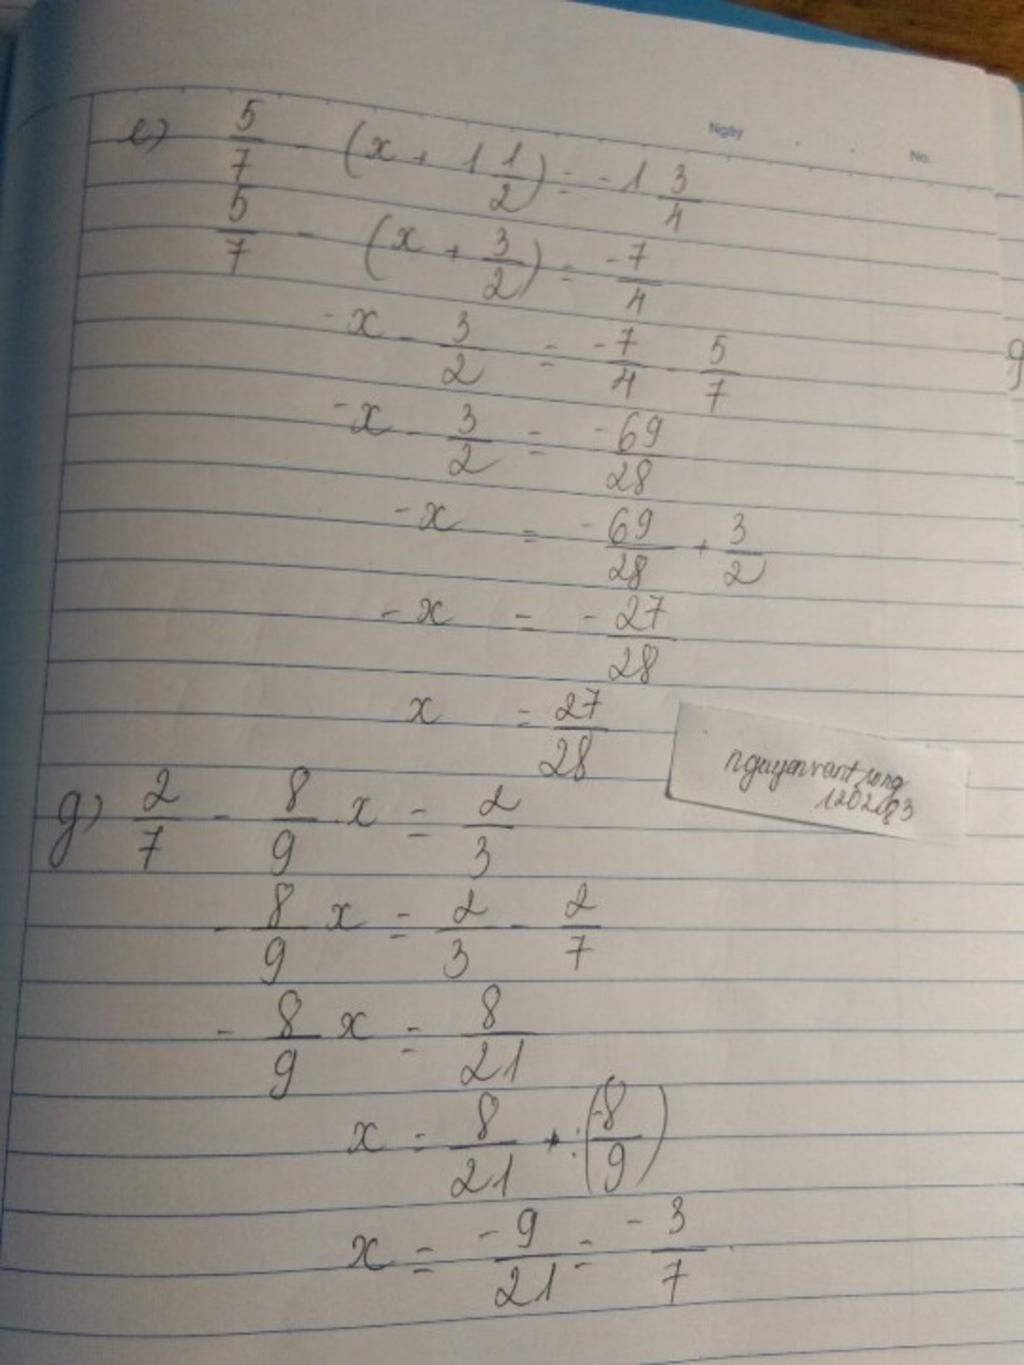 Ngày
No.
e) 5/7 - (x + 1 1/2) = -1 3/4
5/7 - (x + 3/2) = -7/4
-x - 3/2 = -7/4 - 5/7
-x - 3/2 = -69/28
-x = -69/28 + 3/2
-x = -27/28
x = 27/28
g) 2/7 - 8/9 . x = 2/3
-8/9 x = 2/3 - 2/7
-8/9 x = 8/21
x = 8/21 : (-8/9)
x = -9/21 = -3/7
g